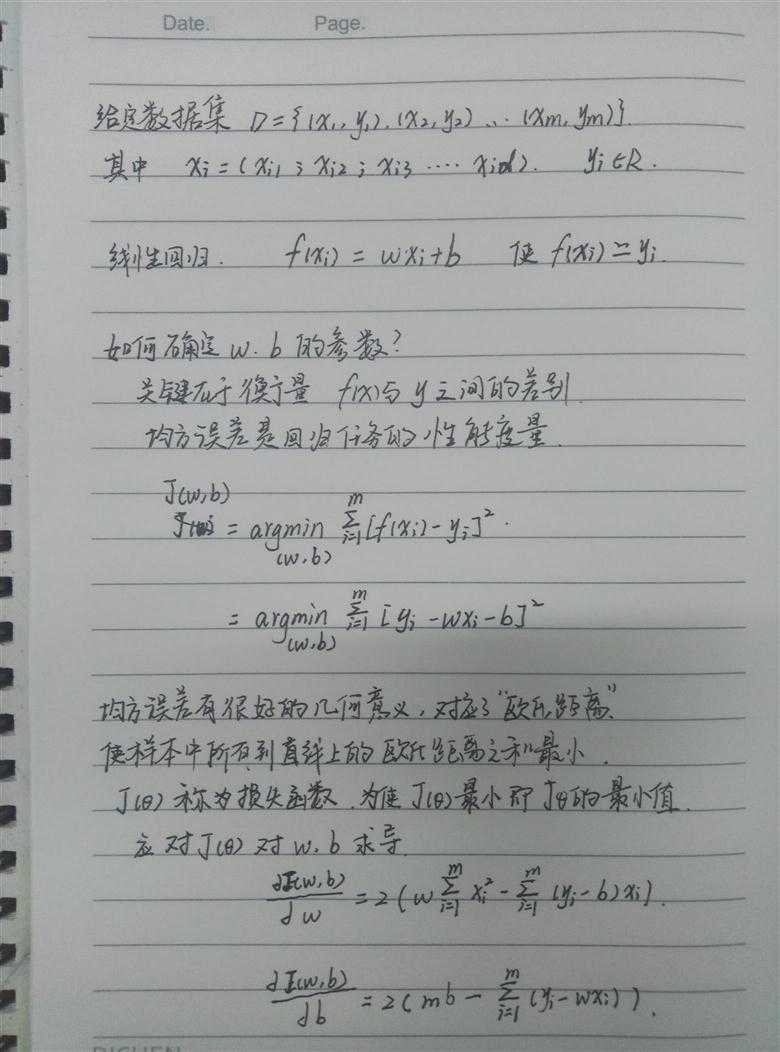 Date. Page.
给定数据集 D={(x₁, y₁).(x₂, y₂) ... (xm, ym)}.
其中 xi=(xi1; xi2; xi3 .... xid). yi∈R.
线性回归. f(xi) = wxi+b 使 f(xi)≃yi.
如何确定 w. b 的参数?
关键在于衡量 f(x)与 y 之间的差别.
均方误差是回归任务的性能度量.
J(w,b)
= argmin(w,b) ∑_{i=1}^{m} [f(xi)-yi]².
= argmin(w,b) ∑_{i=1}^{m} [yi-wxi-b]²
均方误差有很好的几何意义, 对应了"欧氏距离".
使样本中所有到直线上的欧氏距离之和最小.
J(θ) 称为损失函数. 为使 J(θ)最小即 Jθ的最小值.
应对J(θ)对 w. b 求导.
dE(w,b)/dw = 2(w∑_{i=1}^{m} xi² - ∑_{i=1}^{m} (yi-b)xi).
dE(w,b)/db = 2(mb - ∑_{i=1}^{m} (yi-wxi)).